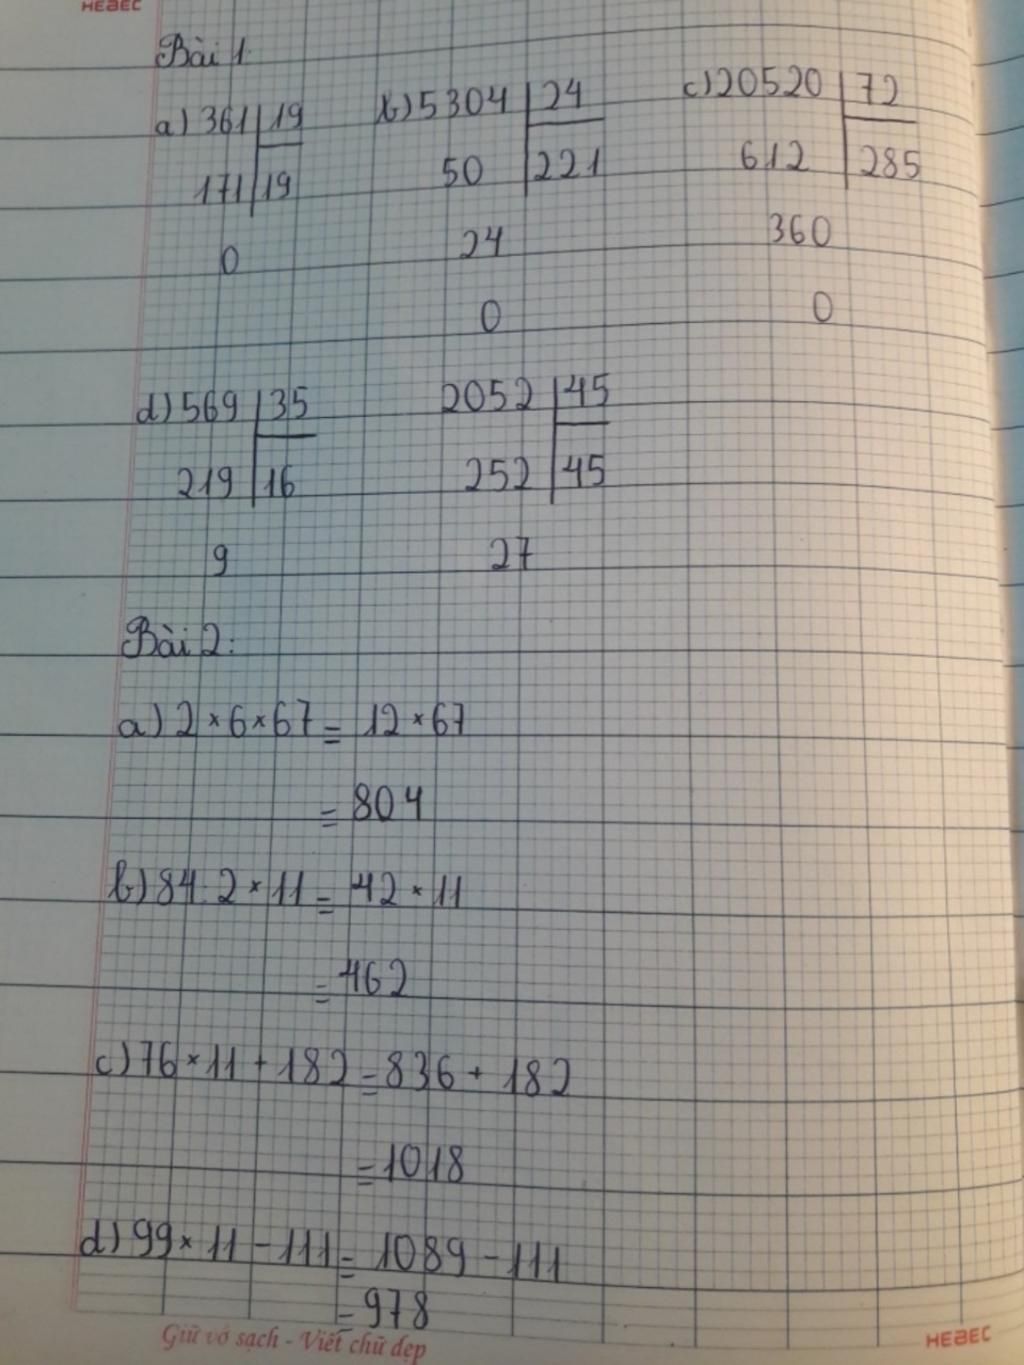 HEBEC
Bài 1
a) 361 19 b) 5304 24 c) 20520 72
171 19 50 221 612 285
0 24 360
0 0
d) 569 35 2052 45
219 16 252 45
9 27
Bài 2:
a) 2 × 6 × 67 = 12 × 67
= 804
b) 84 : 2 × 11 = 42 × 11
= 462
c) 76 × 11 + 182 = 836 + 182
= 1018
d) 99 × 11 - 111 = 1089 - 111
= 978
Giữ vở sạch - Viết chữ đẹp HEBEC